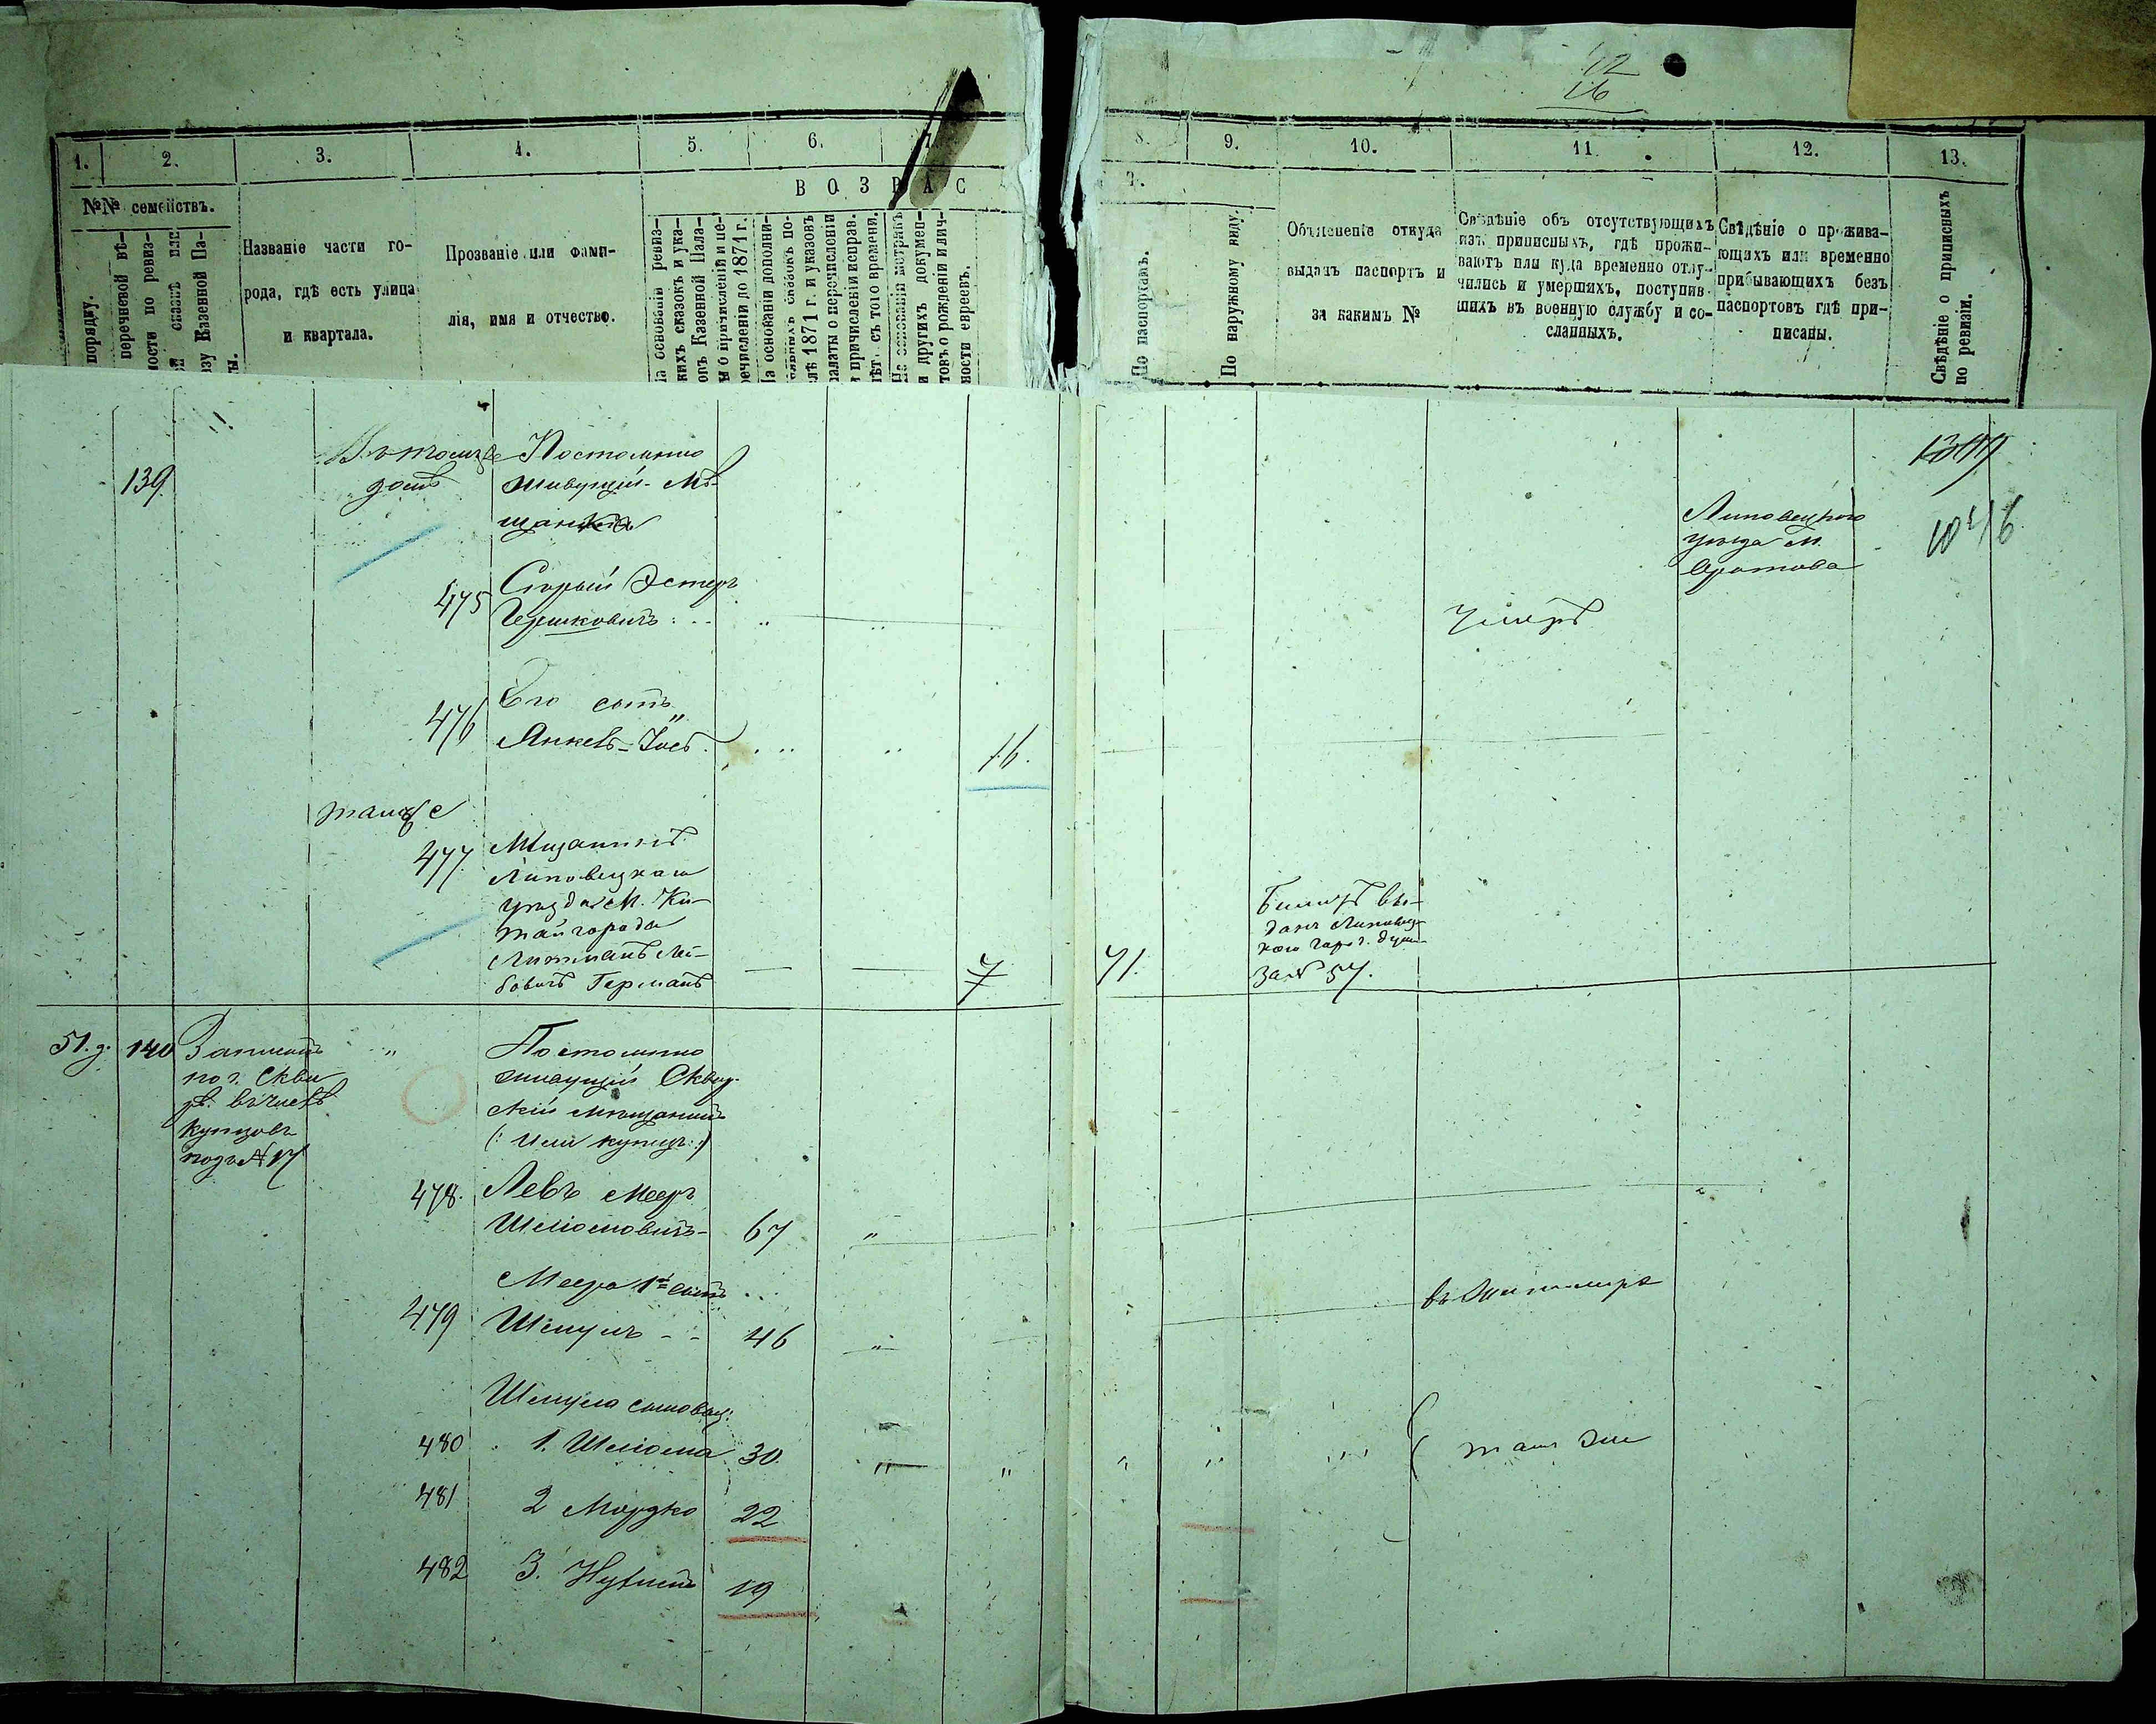 12
16
1.
2.
3.
4.
5.
6.
7.
8.
9.
10.
11.
12.
13.
ВОЗРАС
Т.
№№ семействъ.
порядку.
перечневой вѣ-
ности по ревиз-
й сказкѣ или
азу Казенной Па-
ты.
Названіе части го-
рода, гдѣ есть улица
и квартала.
Прозваніе или фами-
лія, имя и отчество.
На основаніи ревиз-
скихъ сказокъ и ука-
зовъ Казенной Пала-
ты о причисленіи и пе-
речисленіи до 1871 г.
На основаніи дополни-
тельныхъ сказокъ по-
слѣ 1871 г. и указовъ
палаты о перечисленіи
и причисленіи исправ.
лѣтъ съ того времени.
На основаніи метрикъ
и другихъ докумен-
товъ о рожденіи и лич-
ности евреевъ.
По паспортамъ.
По наружному виду.
Объясненіе откуда
выданъ паспортъ и
за какимъ №
Свѣдѣніе объ отсутствующихъ
изъ приписныхъ, гдѣ прожи-
ваютъ или куда временно отлу-
чились и умершихъ, поступив-
шихъ въ военную службу и со-
сланныхъ.
Свѣдѣніе о прожива-
ющихъ или временно
прибывающихъ безъ
паспортовъ гдѣ при-
писаны.
Свѣдѣніе о приписныхъ
по ревизіи.
139
Въ томъ же
домѣ
Постоянно
живущій Мѣ-
щанинъ
Липовецкаго
уѣзда М.
Оратова
1046
475
Старый Эстеръ
Гершковичъ
Умеръ
476
Его сынъ
Янкевъ-Іосъ
16.
тамже
477
Мѣщанинъ
Липовецкаго
уѣзда М. Ки-
тайгорода
Литманъ Лей-
бовичъ Германъ
7
71.
Билетъ вы-
данъ Липовец-
каго город. думы
за № 57.
51. д.
140
Записанъ
по г. Скви
рѣ въ числѣ
купцовъ
подъ № 17
Постоянно
живущій Сквир-
скій мѣщанинъ
(: или купецъ :)
478.
Левъ Мееръ
Шліомовичъ
67
Меера 1й сынъ
479
Шмулъ
46
въ Житомірѣ
Шмуля сыновья:
480
1. Шліома
30
тамъ же
481
2 Мордко
22
482
3. Нухимъ
19